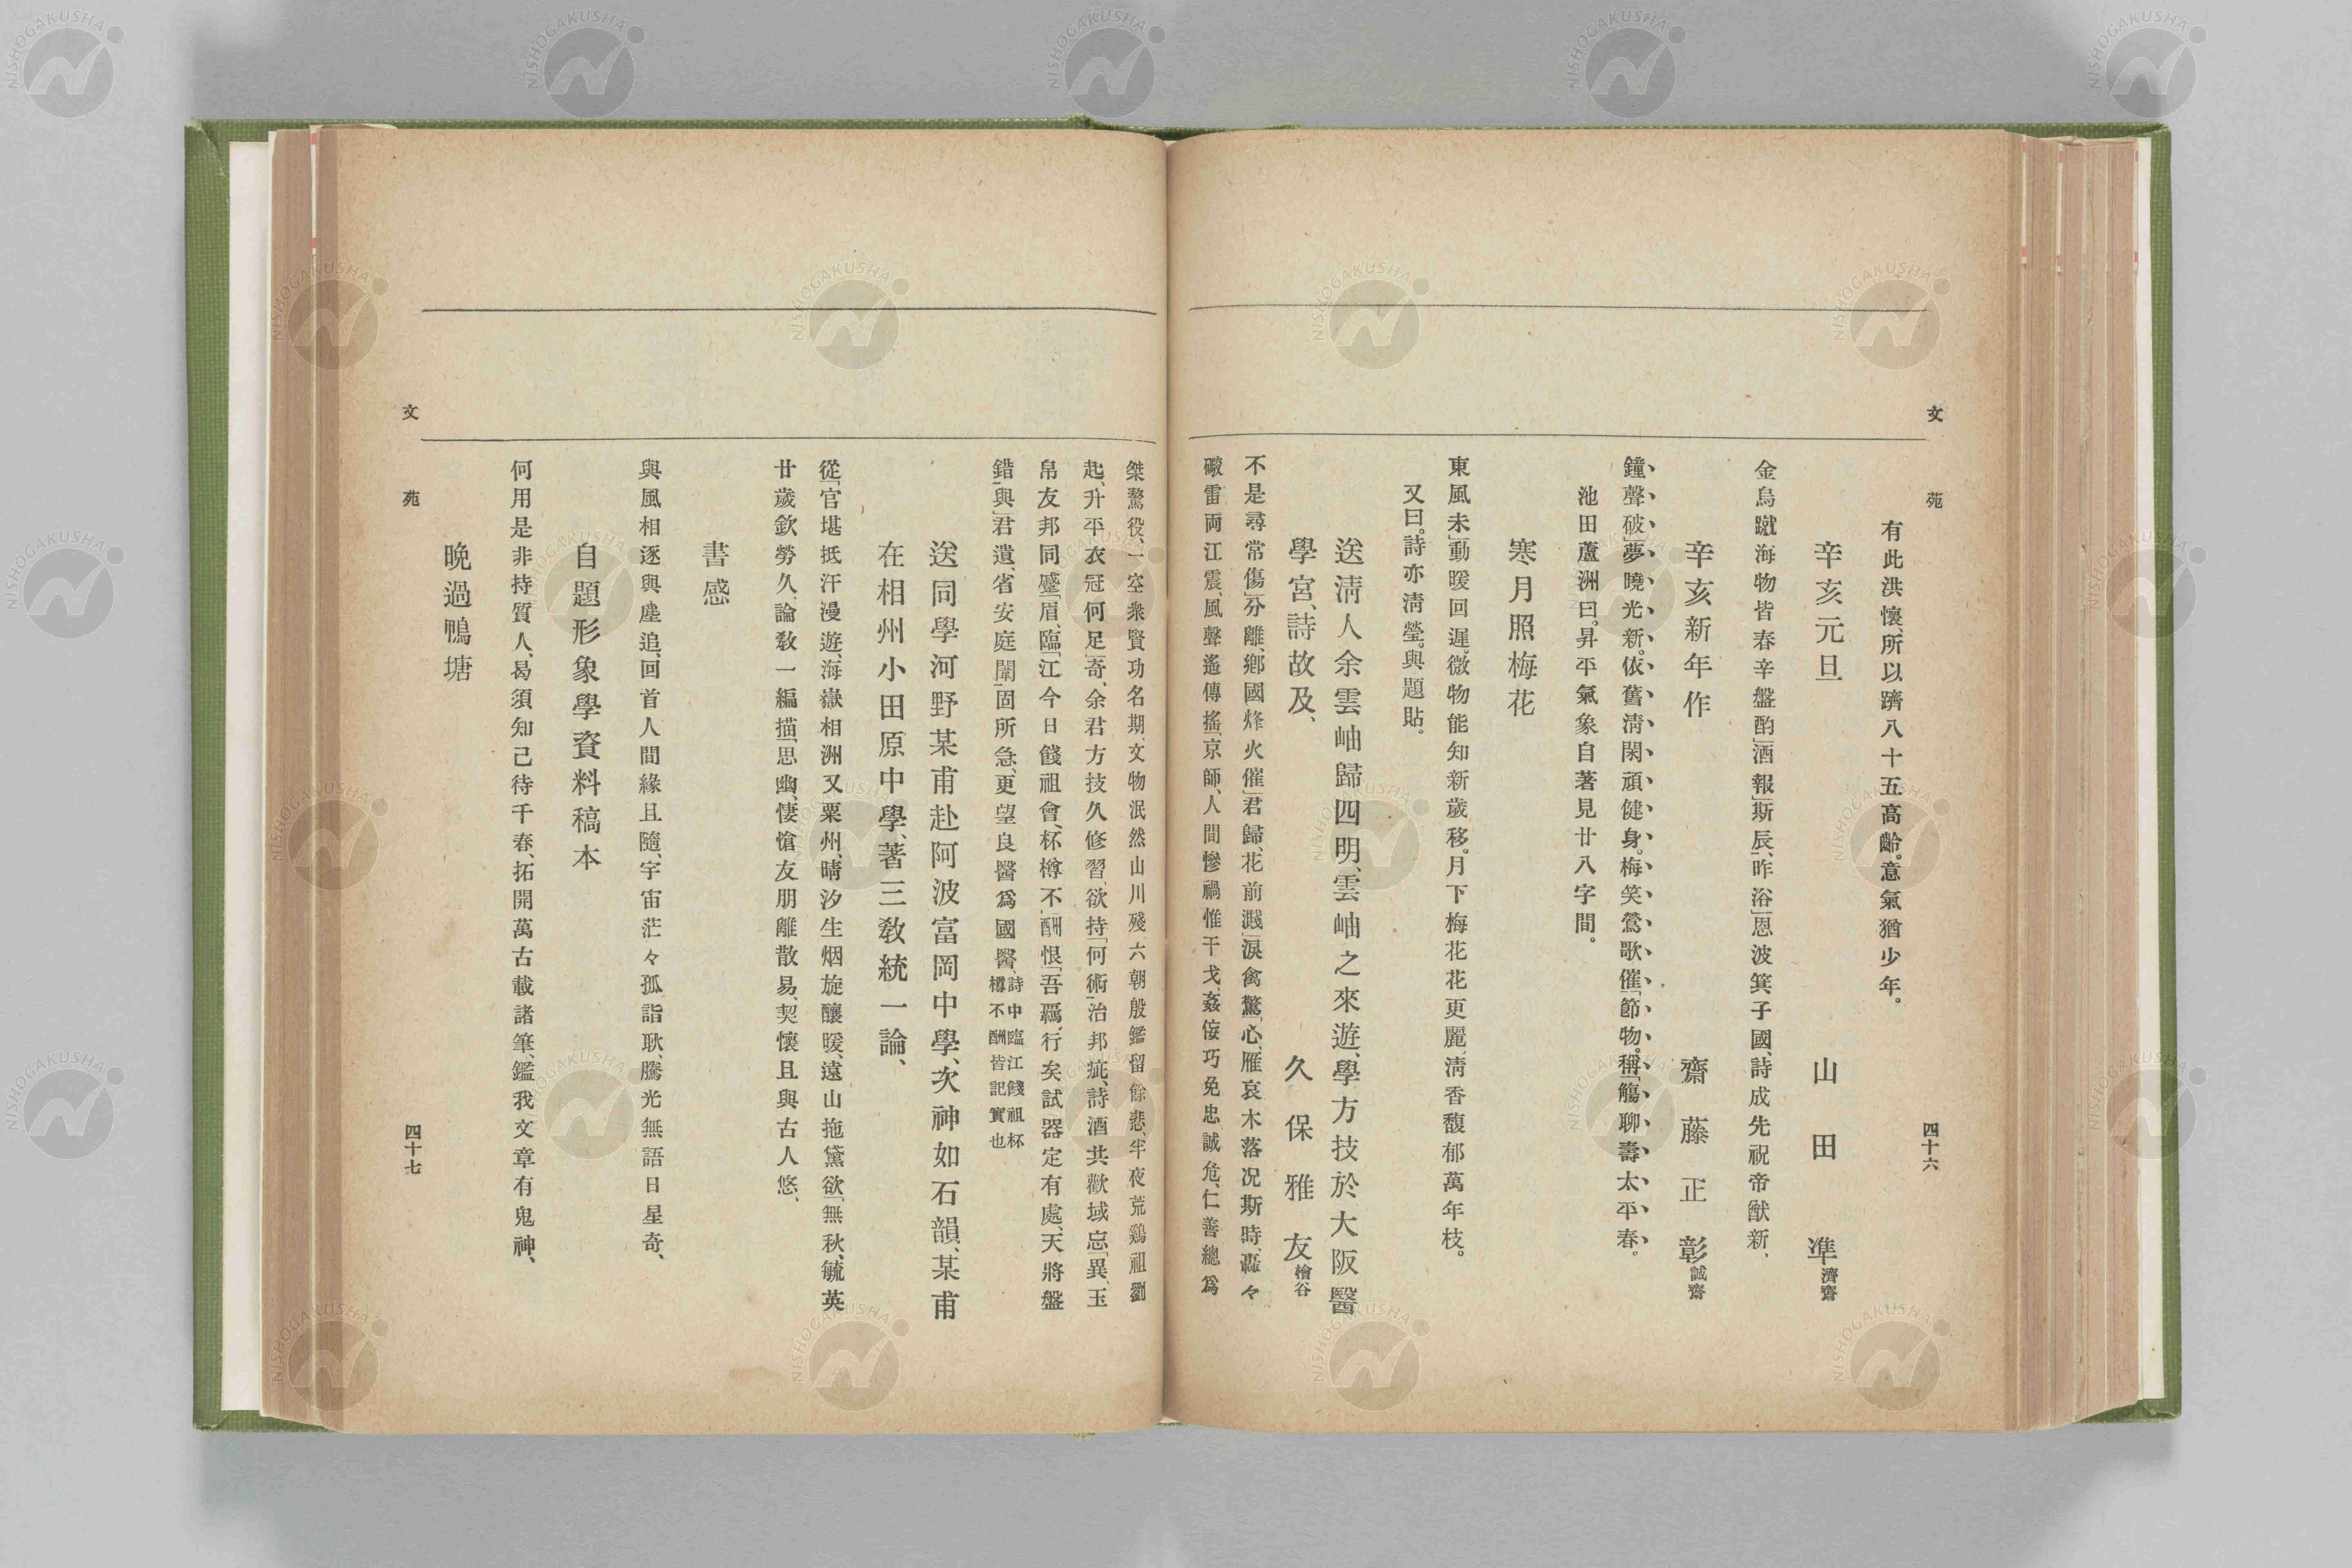 文苑
四十六
有此洪懷、所以躋八十五高齡。意氣猶少年。
辛亥元旦
山田準 濟齋
金烏躍海物皆春、辛盤酌酒報斯辰、昨浴恩波箕子國、詩成先祝帝猷新、
辛亥新年作
齋藤正彰 誠齋
鐘聲破夢曉光新。依舊淸閑頑健身。梅笑鶯歌催節物。稱觴聊壽太平春。
池田蘆洲曰。昇平氣象自著見廿八字間。
寒月照梅花
東風未動暖回遲。微物能知新歲移。月下梅花花更麗、淸香馥郁萬年枝。
又曰。詩亦淸瑩。與題貼。
送淸人余雲岫歸四明、雲岫之來遊、學方技於大阪醫
學宮、詩故及、
久保雅友 檜谷
不是尋常傷分離、鄕國烽火催君歸、花前濺淚禽驚心、雁哀木落况斯時、轟々
礮雷兩江震、風聲遙傳搖京師、人間慘禍惟干戈、姦佞巧免忠誠危、仁善總爲
桀驁役、一空衆賢功名期、文物泯然山川殘、六朝殷鑑留餘悲、半夜荒鷄祖劉
起、升平衣冠何足奇、余君方技久修習、欲持何術治邦疵、詩酒共歡域忘異、玉
帛友邦同蹙眉、臨江今日餞祖會、杯樽不酬恨吾羈、行矣試器定有處、天將盤
錯與君遺、省安庭闈固所急、更望良醫爲國醫、詩中臨江餞祖杯
樽不酬皆記實也
送同學河野某甫赴阿波富岡中學、次神如石韻、某甫
在相州小田原中學、著三敎統一論、
從官堪抵汗漫遊、海嶽相洲又粟州、晴汐生烟旋釀暖、遠山拖黛欲無秋、毓英
廿歲欽勞久、論敎一編描思幽、悽愴友朋離散易、契懷且與古人悠、
書感
與風相逐與塵追、回首人間緣且隨、宇宙茫々孤詣耿、騰光無語日星奇、
自題形象學資料稿本
何用是非持質人、曷須知己待千春、拓開萬古載諸筆、鑑我文章有鬼神、
晩過鴨塘
文苑
四十七